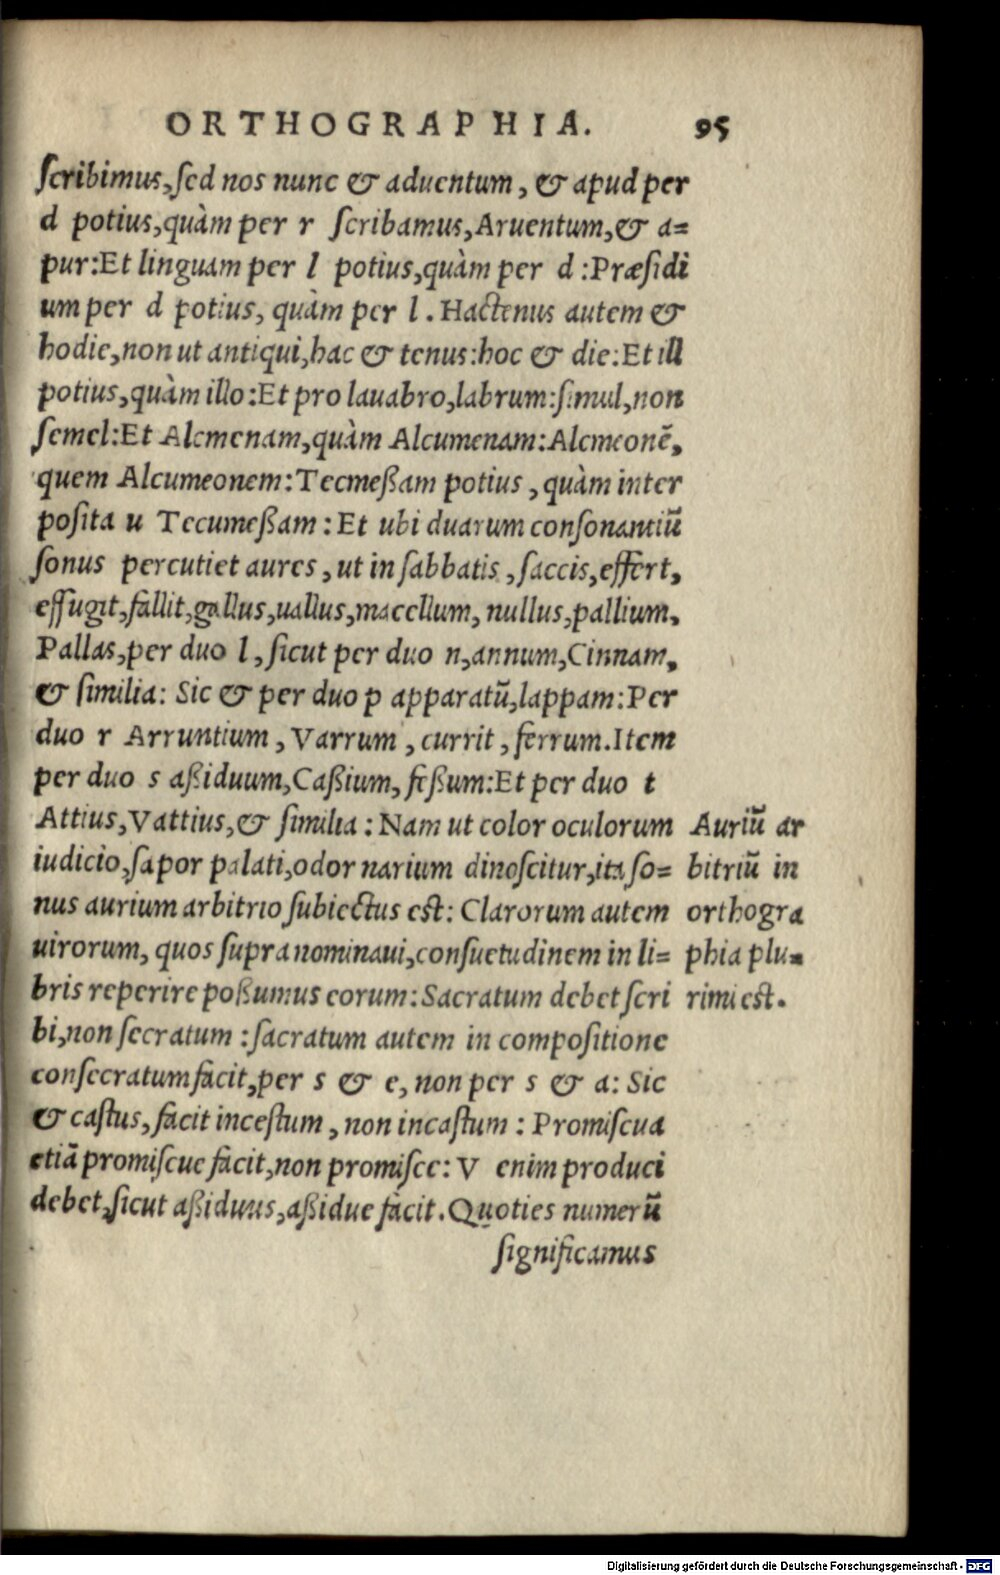 ORTHOGRAPHIA. 95
ſcribimus, ſed nos nunc & aduentum, & apud per
d potius, quàm per r ſcribamus, Aruentum, & a=
pur: Et linguam per l potius, quàm per d: Præſidi
um per d potius, quàm per l. Hactenus autem &
hodie, non ut antiqui, hac & tenus: hoc & die: Et ill
potius, quàm illo: Et pro lauabro, labrum: ſimul, non
ſemel: Et Alcmenam, quàm Alcumenam: Alcmeonē,
quem Alcumeonem: Tecmeßam potius, quàm inter
poſita u Tecumeßam: Et ubi duarum conſonantiū
ſonus percutiet aures, ut in ſabbatis, ſaccis, effert,
effugit, fallit, gallus, uallus, macellum, nullus, pallium,
Pallas, per duo l, ſicut per duo n, annum, Cinnam,
& ſimilia: Sic & per duo p apparatū, lappam: Per
duo r Arruntium, Varrum, currit, ferrum. Item
per duo s aßiduum, Caßium, feßum: Et per duo t
Attius, Vattius, & ſimilia: Nam ut color oculorum
iudicio, ſapor palati, odor narium dinoſcitur, ita ſo=
nus aurium arbitrio ſubiectus eſt: Clarorum autem
uirorum, quos ſupra nominaui, conſuetudinem in li=
bris reperire poßumus eorum: Sacratum debet ſcri
bi, non ſecratum: ſacratum autem in compoſitione
conſecratum facit, per s & e, non per s & a: Sic
& caſtus, facit inceſtum, non incaſtum: Promiſcua
etiā promiſcue facit, non promiſce: V enim produci
debet, ſicut aßiduus, aßidue facit. Quoties numerū
ſignificamus
Auriū ar
bitriū in
orthogra
phia plu=
rimi eſt.
Digitalisierung gefördert durch die Deutsche Forschungsgemeinschaft - DFG